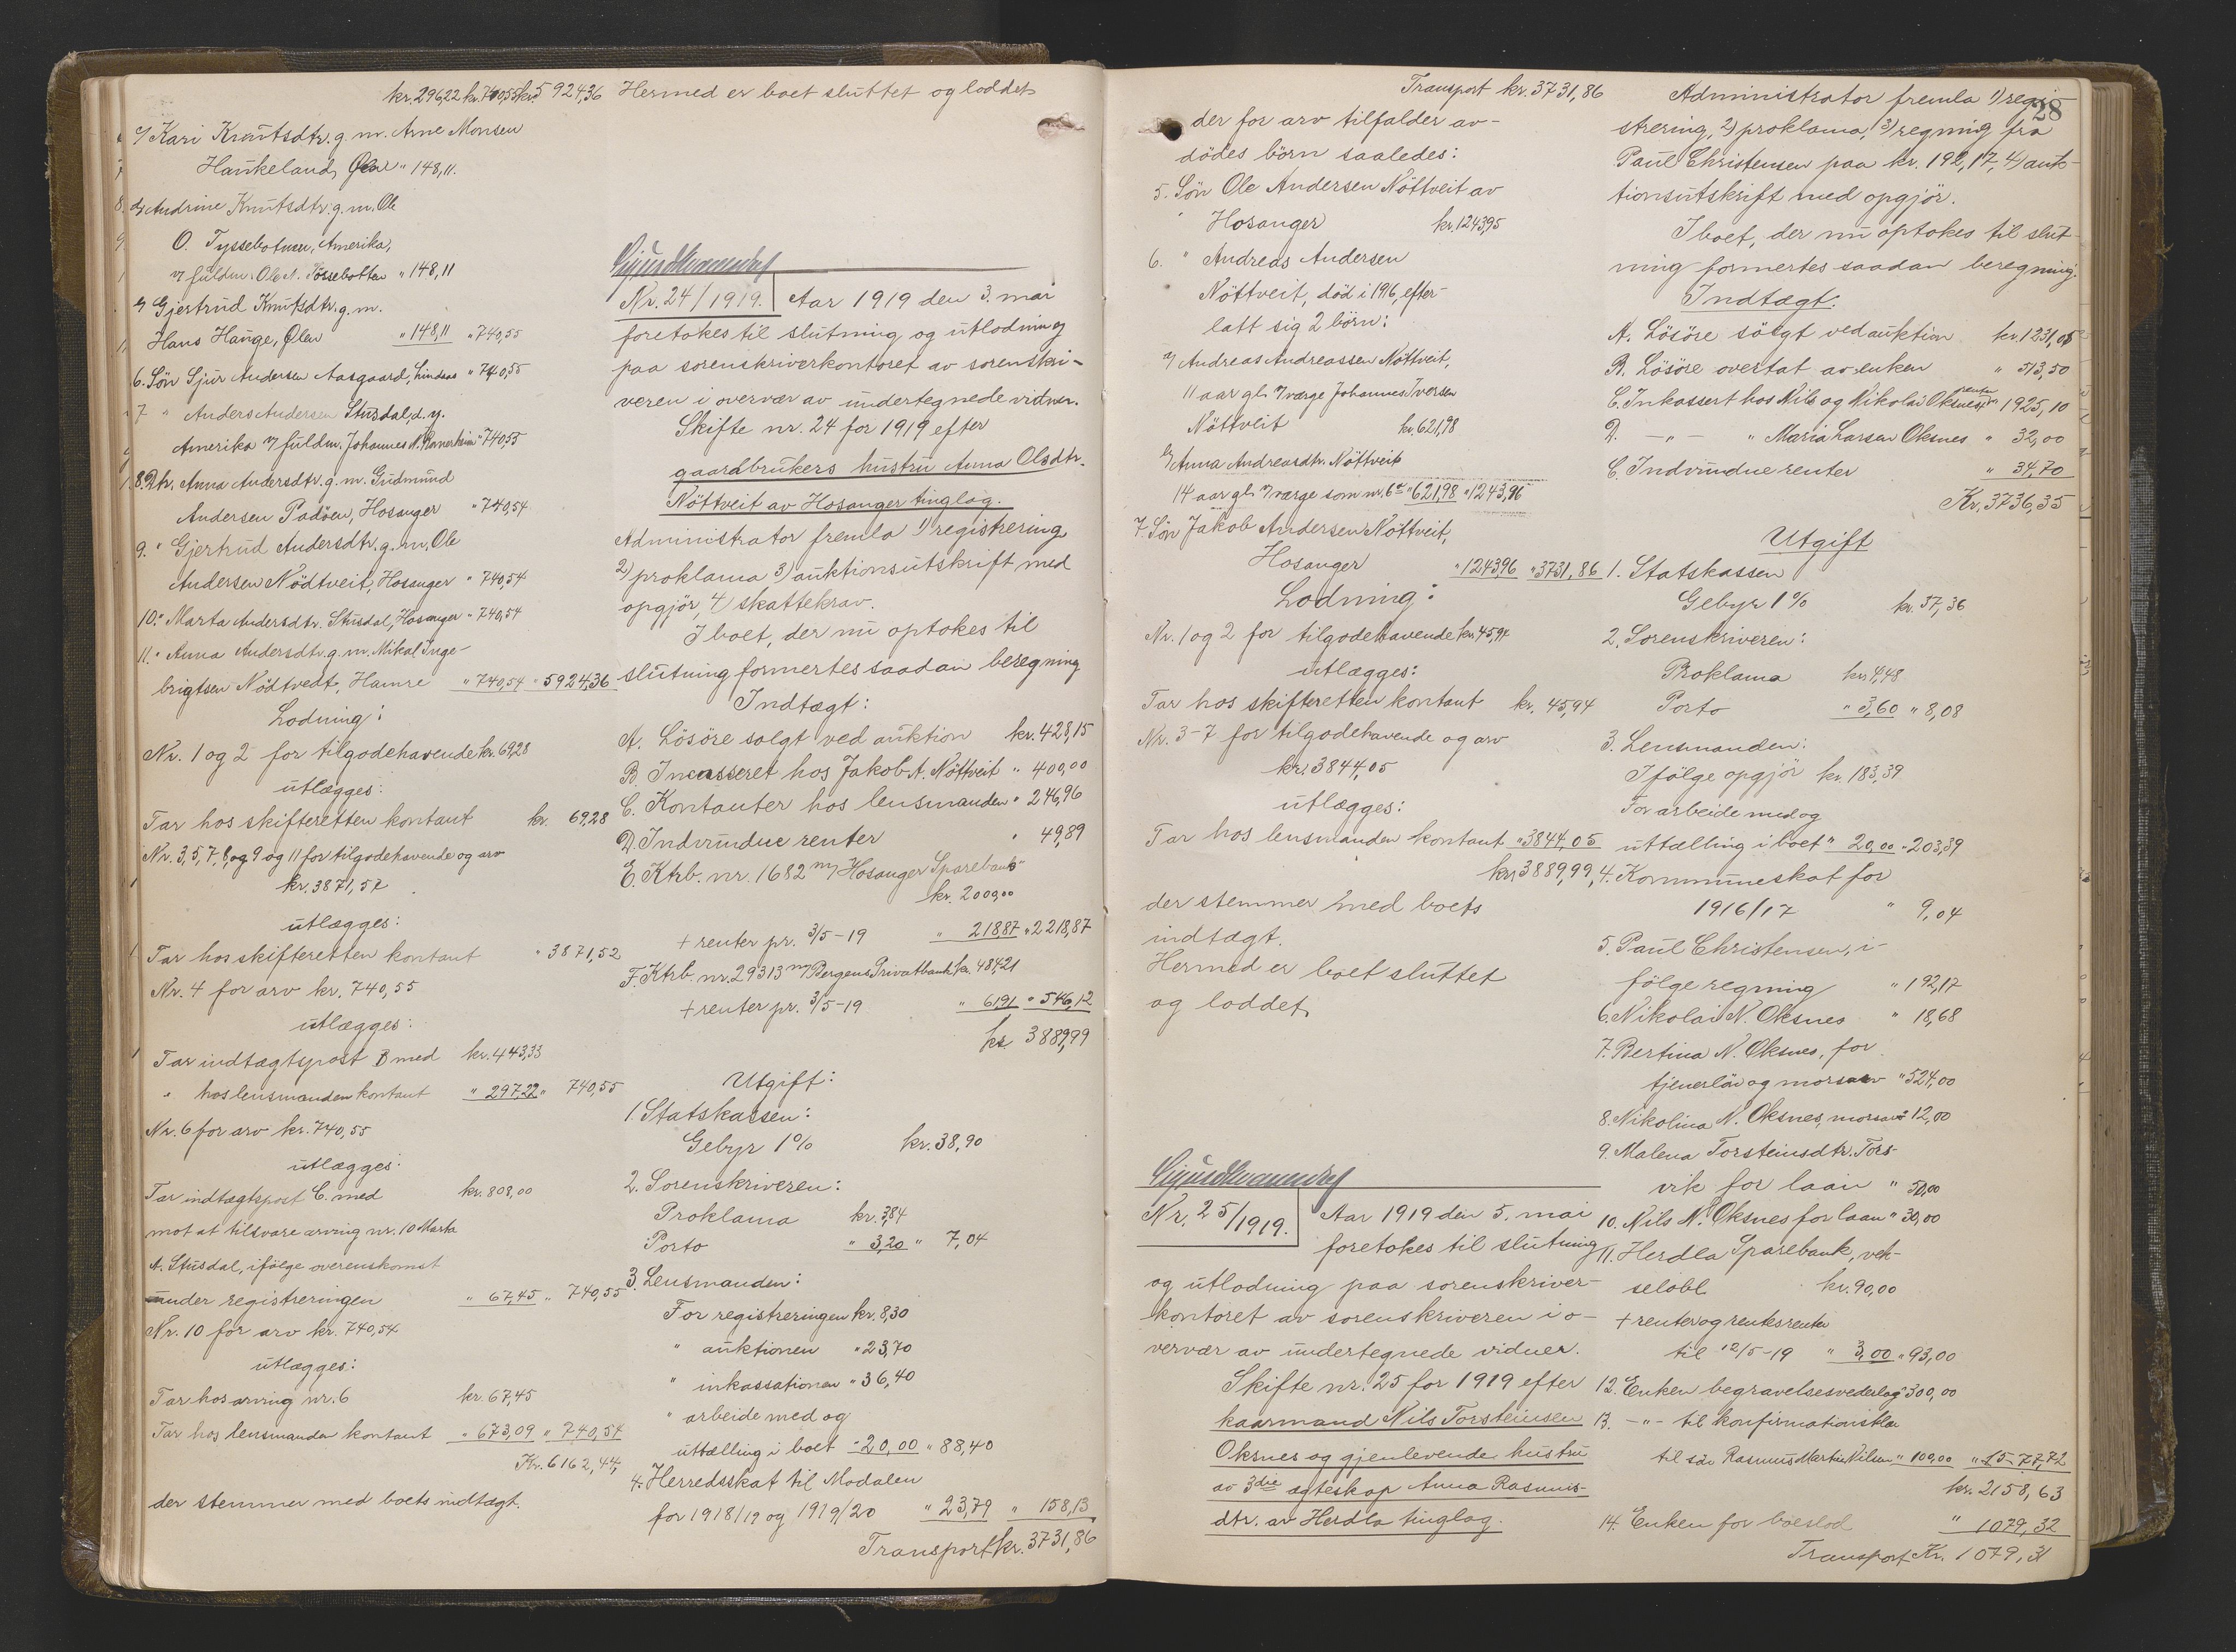 kr. 296,22 kr. 740,55 kr. 5924,36
c/ Kari Knutsdtr. g. m. Arne Monsen
Haukeland, Ølen " 148,11.
d/ Andrine Knutsdtr. g. m. Ole
O. Tyssebotnen, Amerika,
v/ fuldm. Ole N. Tössebotten " 148,11
e/ Gjertrud Knutsdtr. g. m.
Hans Hauge, Ølen " 148,11 " 740,55
6. Sön Sjur Andersen Aasgaard, Lindaas " 740,55
7 " Anders Andersen Stusdal, d. y.
Amerika v/ fuldm. Johannes N. Romerheim " 740,55
8. Dtr. Anna Andersdtr. g. m. Gudmund
Andersen Padöen, Hosanger " 740,54
9. " Gjertrud Andersdtr. g. m. Ole
Andersen Nödtveit, Hosanger " 740,54
10. " Marta Andersdtr. Stusdal, Hosanger " 740,54
11. " Anna Andersdtr. g. m. Mikal Inge-
brigtsen Nödtvedt, Hamre " 740,54 " 5924,36
Lodning:
Nr. 1 og 2 for tilgodehavende kr. 69,28
utlægges:
Tar hos skifteretten kontant kr. 69,28
Nr. 3, 5, 7, 8, og 9 og 11 for tilgodehavende og arv
kr. 3871,52.
utlægges:
Tar hos skifteretten kontant " 3871,52
Nr. 4 for arv kr. 740,55
utlægges:
Tar indtægtspost B med kr. 443,33
" hos lensmanden kontant " 297,22 " 740,55
Nr. 6 for arv kr. 740,55
utlægges:
Tar indtægtspost C. med kr. 808,00
mot at tilsvare arving nr. 10 Marta
A. Stusdal, ifölge overenskomst
under registreringen " 67,45 " 740,55
Nr. 10 for arv kr. 740,54
utlægges:
Tar hos arving nr. 6 kr. 67,45
Tar hos lensmanden kontant " 673,09 " 740,54
Kr. 6162,44,
der stemmer med boets indtægt.
Hermed er boet sluttet og loddet
Nr. 24/1919. Aar 1919 den 3. mai
foretokes til slutning og utlodning
paa sorenskriverkontoret av sorenskri-
veren i overvær av undertegnede vidner.
Skifte nr. 24 for 1919 efter
gaardbrukers hustru Anna Olsdtr.
Nöttveit av Hosanger tinglag.
Administrator fremla 1) registrering
2) proklama 3) auktionsutskrift med
opgjör, 4) skattekrav.
I boet, der nu optokes til
slutning formertes saadan beregning
Indtægt:
A. Lösöre solgt ved auktion kr. 428,15
B Incasseret hos Jakob A. Nöttveit " 400,00
C. Kontanter hos lensmanden " 246,96
D. Indvundne renter " 49,89
E. Ktrb. nr. 1682 m/ Hosanger Sparebank
kr. 2000,00
+ renter pr. 3/5-19 " 218,87 " 2218,87
F. Ktrb. nr. 29313 m/ Bergens Privatbank kr. 484,21
+ renter pr. 3/5-19 " 61,91 " 546,12
kr. 3889,99
Utgift:
1. Statskassen:
Gebyr 1% kr. 38,90
2. Sorenskriveren:
Proklama kr. 3,84
Porto " 3,20 " 7,04
3. Lensmanden:
For registreringen kr. 8,30
" auktionen " 23,70
" inkassationen " 36,40
" arbeide med og
uttælling i boet " 20,00 " 88,40
4. Herredsskat til Modalen
for 1918/19 og 1919/20 " 23,79 " 158,13
Transport kr. 3731,86
Transport kr. 3731,86
der for arv tilfalder av-
dödes börn saaledes:
5. Sön Ole Andersen Nöttveit av
Hosanger kr. 1243,95
6. " Andreas Andersen
Nöttveit, död i 1916, efter-
latt sig 2 börn:
a/ Andreas Andreassen Nöttveit,
11 aar gl. v/ værge Johannes Iversen
Nöttveit kr. 621,98
b/ Anna Andreasdtr. Nöttveit
14 aar gl. v/ værge som nr. 6a " 621,98 " 1243,96
7. Sön Jakob Andersen Nöttveit,
Hosanger " 1243,96 " 3731,86
Lodning:
Nr. 1 og 2 for tilgodehavende kr. 45,94
utlægges:
Tar hos skifteretten kontant kr. 45,94
Nr. 3-7 for tilgodehavende og arv
kr. 3844,05
utlægges:
Tar hos lensmanden kontant " 3844,05
kr. 3889,99,
der stemmer med boets
indtægt.
Hermed er boet sluttet
og loddet,
Nr. 25/1919. Aar 1919 den 5. mai
foretokes til slutning
og utlodning paa sorenskriver-
kontoret av sorenskriveren i o-
vervær av undertegnede vidner.
Skifte nr. 25 for 1919 efter
kaarmand Nils Torsteinsen
Oksnes og gjenlevende hustru
av 3die egteskap Anna Rasmus-
dtr. av Herdla tinglag.
28
Administrator fremla 1) regi-
strering, 2) proklama, 3) regning fra
Paul Christensen paa kr. 192,17, 4) auk-
tionsutskrift med opgjör.
I boet, der nu optokes til slut-
ning formertes saadan beregning:
Indtægt:
A. Lösöre solgt ved auktion kr. 1231,05
B. Lösöre overtat av enken " 513,50
C. Inkassert hos Nils og Nikolai Oksnes " 1925,10
D. -"- " Maria Larsen Oksnes " 32,00
E. Indvundne renter " 34,70
Kr. 3736,35
Utgift
1. Statskassen
Gebyr 1% kr. 37,36
2. Sorenskriveren:
Proklama kr. 4,48
Porto " 3,60 " 8,08
3. Lensmanden:
Ifölge opgjör kr. 183,39
For arbeide med og
uttælling i boet " 20,00 " 203,39
4. Kommuneskat for
1916/17 " 9,04
5. Paul Christensen, i-
fölge regning " 192,17
6. Nikolai N. Oksnes " 18,68
7. Bertina N. Oksnes, for
tjenerlön og morsarv " 524,00
8. Nikolina N. Oksnes, morsarv " 12,00
9. Malena Torsteinsdtr. Tors-
vik for laan " 50,00
10. Nils N. Oksnes for laan " 30,00
11. Herdla Sparebank, vek-
selobl. kr. 90,00
+ renter og rentesrenter
til 12/5-19 " 3,00 " 93,00
12. Enken begravelsesvederlag " 300,00
13. -"- til konfirmationsklær
til sön Rasmus Martin Nilsen " 100,00 " 1577,72
kr. 2158,63
14. Enken for boeslod " 1079,32
Transport Kr. 1079,31